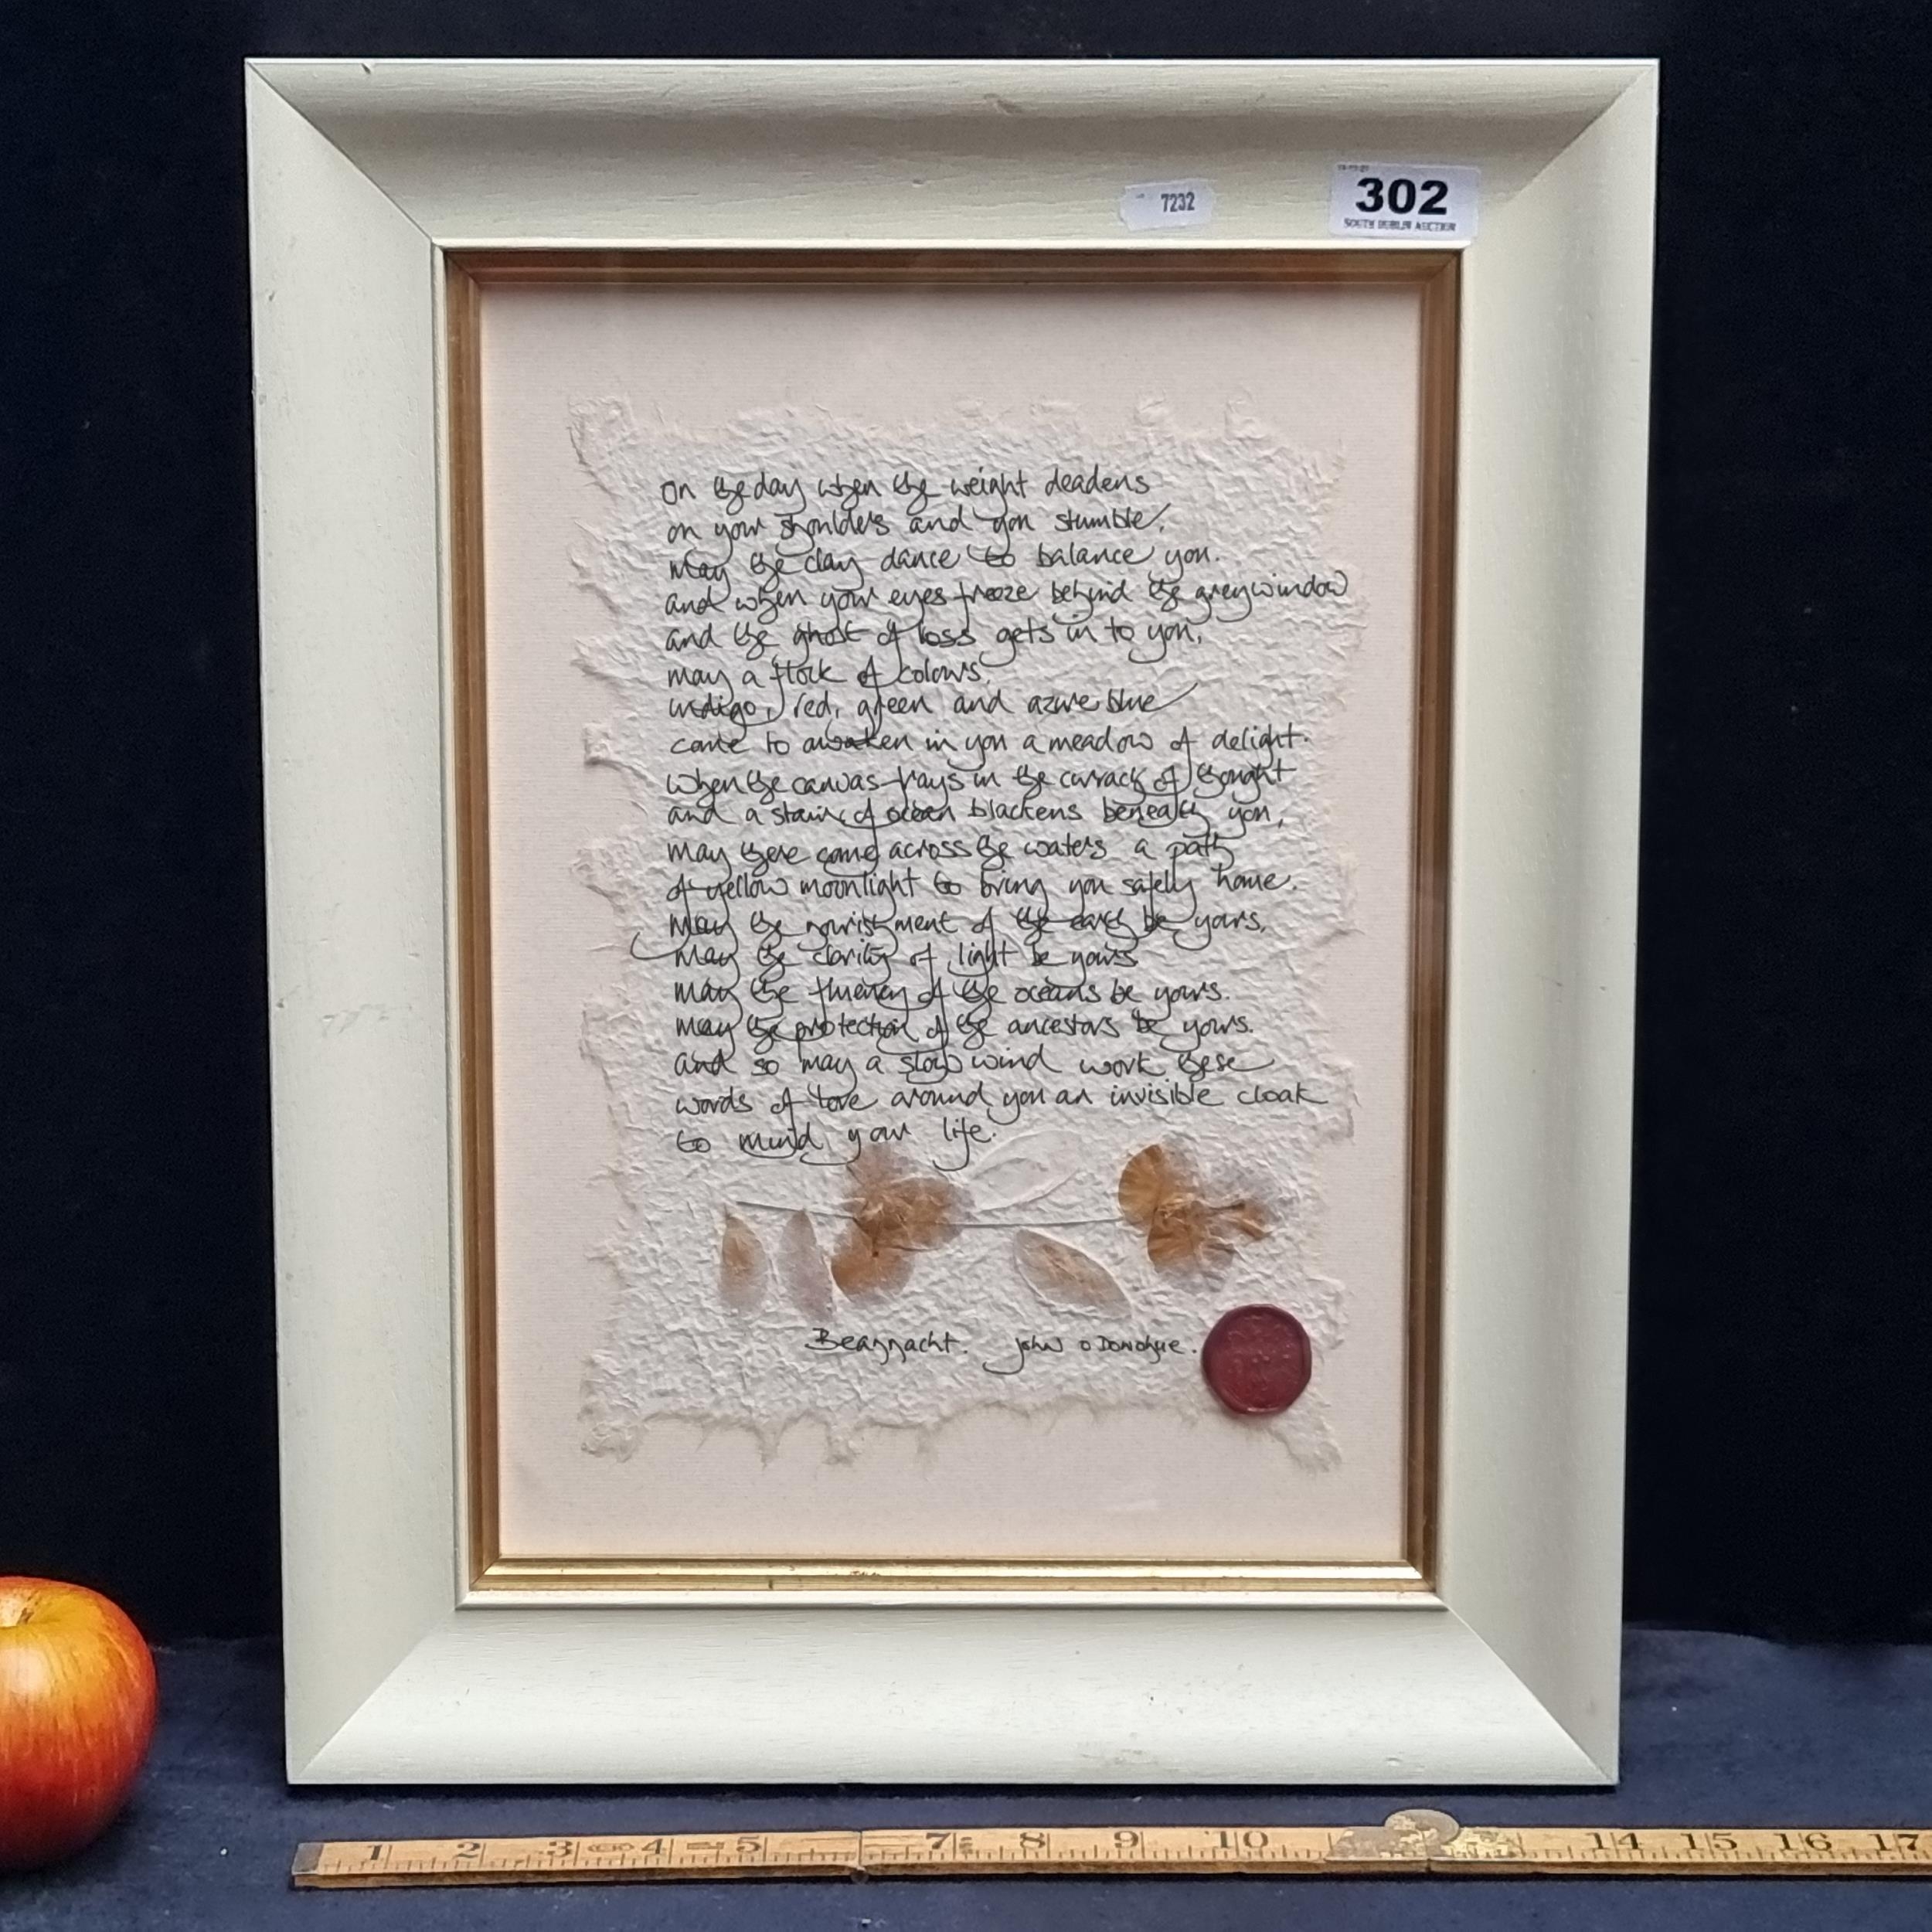 7232
302
SOUTH DUBLIN AUCTION
On the day when the weight deadens
on your shoulders and you stumble,
may the clay dance to balance you.
and when your eyes freeze behind the grey window
and the ghost of loss gets in to you,
may a flock of colours,
indigo, red, green and azure blue
come to awaken in you a meadow of delight.
when the canvas frays in the currach of thought
and a stain of ocean blackens beneath you,
may there come across the waters a path
of yellow moonlight to bring you safely home.
may the nourishment of the earth be yours,
may the clarity of light be yours
may the fluency of the oceans be yours.
may the protection of the ancestors be yours.
and so may a slow wind work these
words of love around you an invisible cloak
to mind your life.
Beannacht. John O Donohue.
1 2 3 4 5 7 8 9 10 14 15 16 17